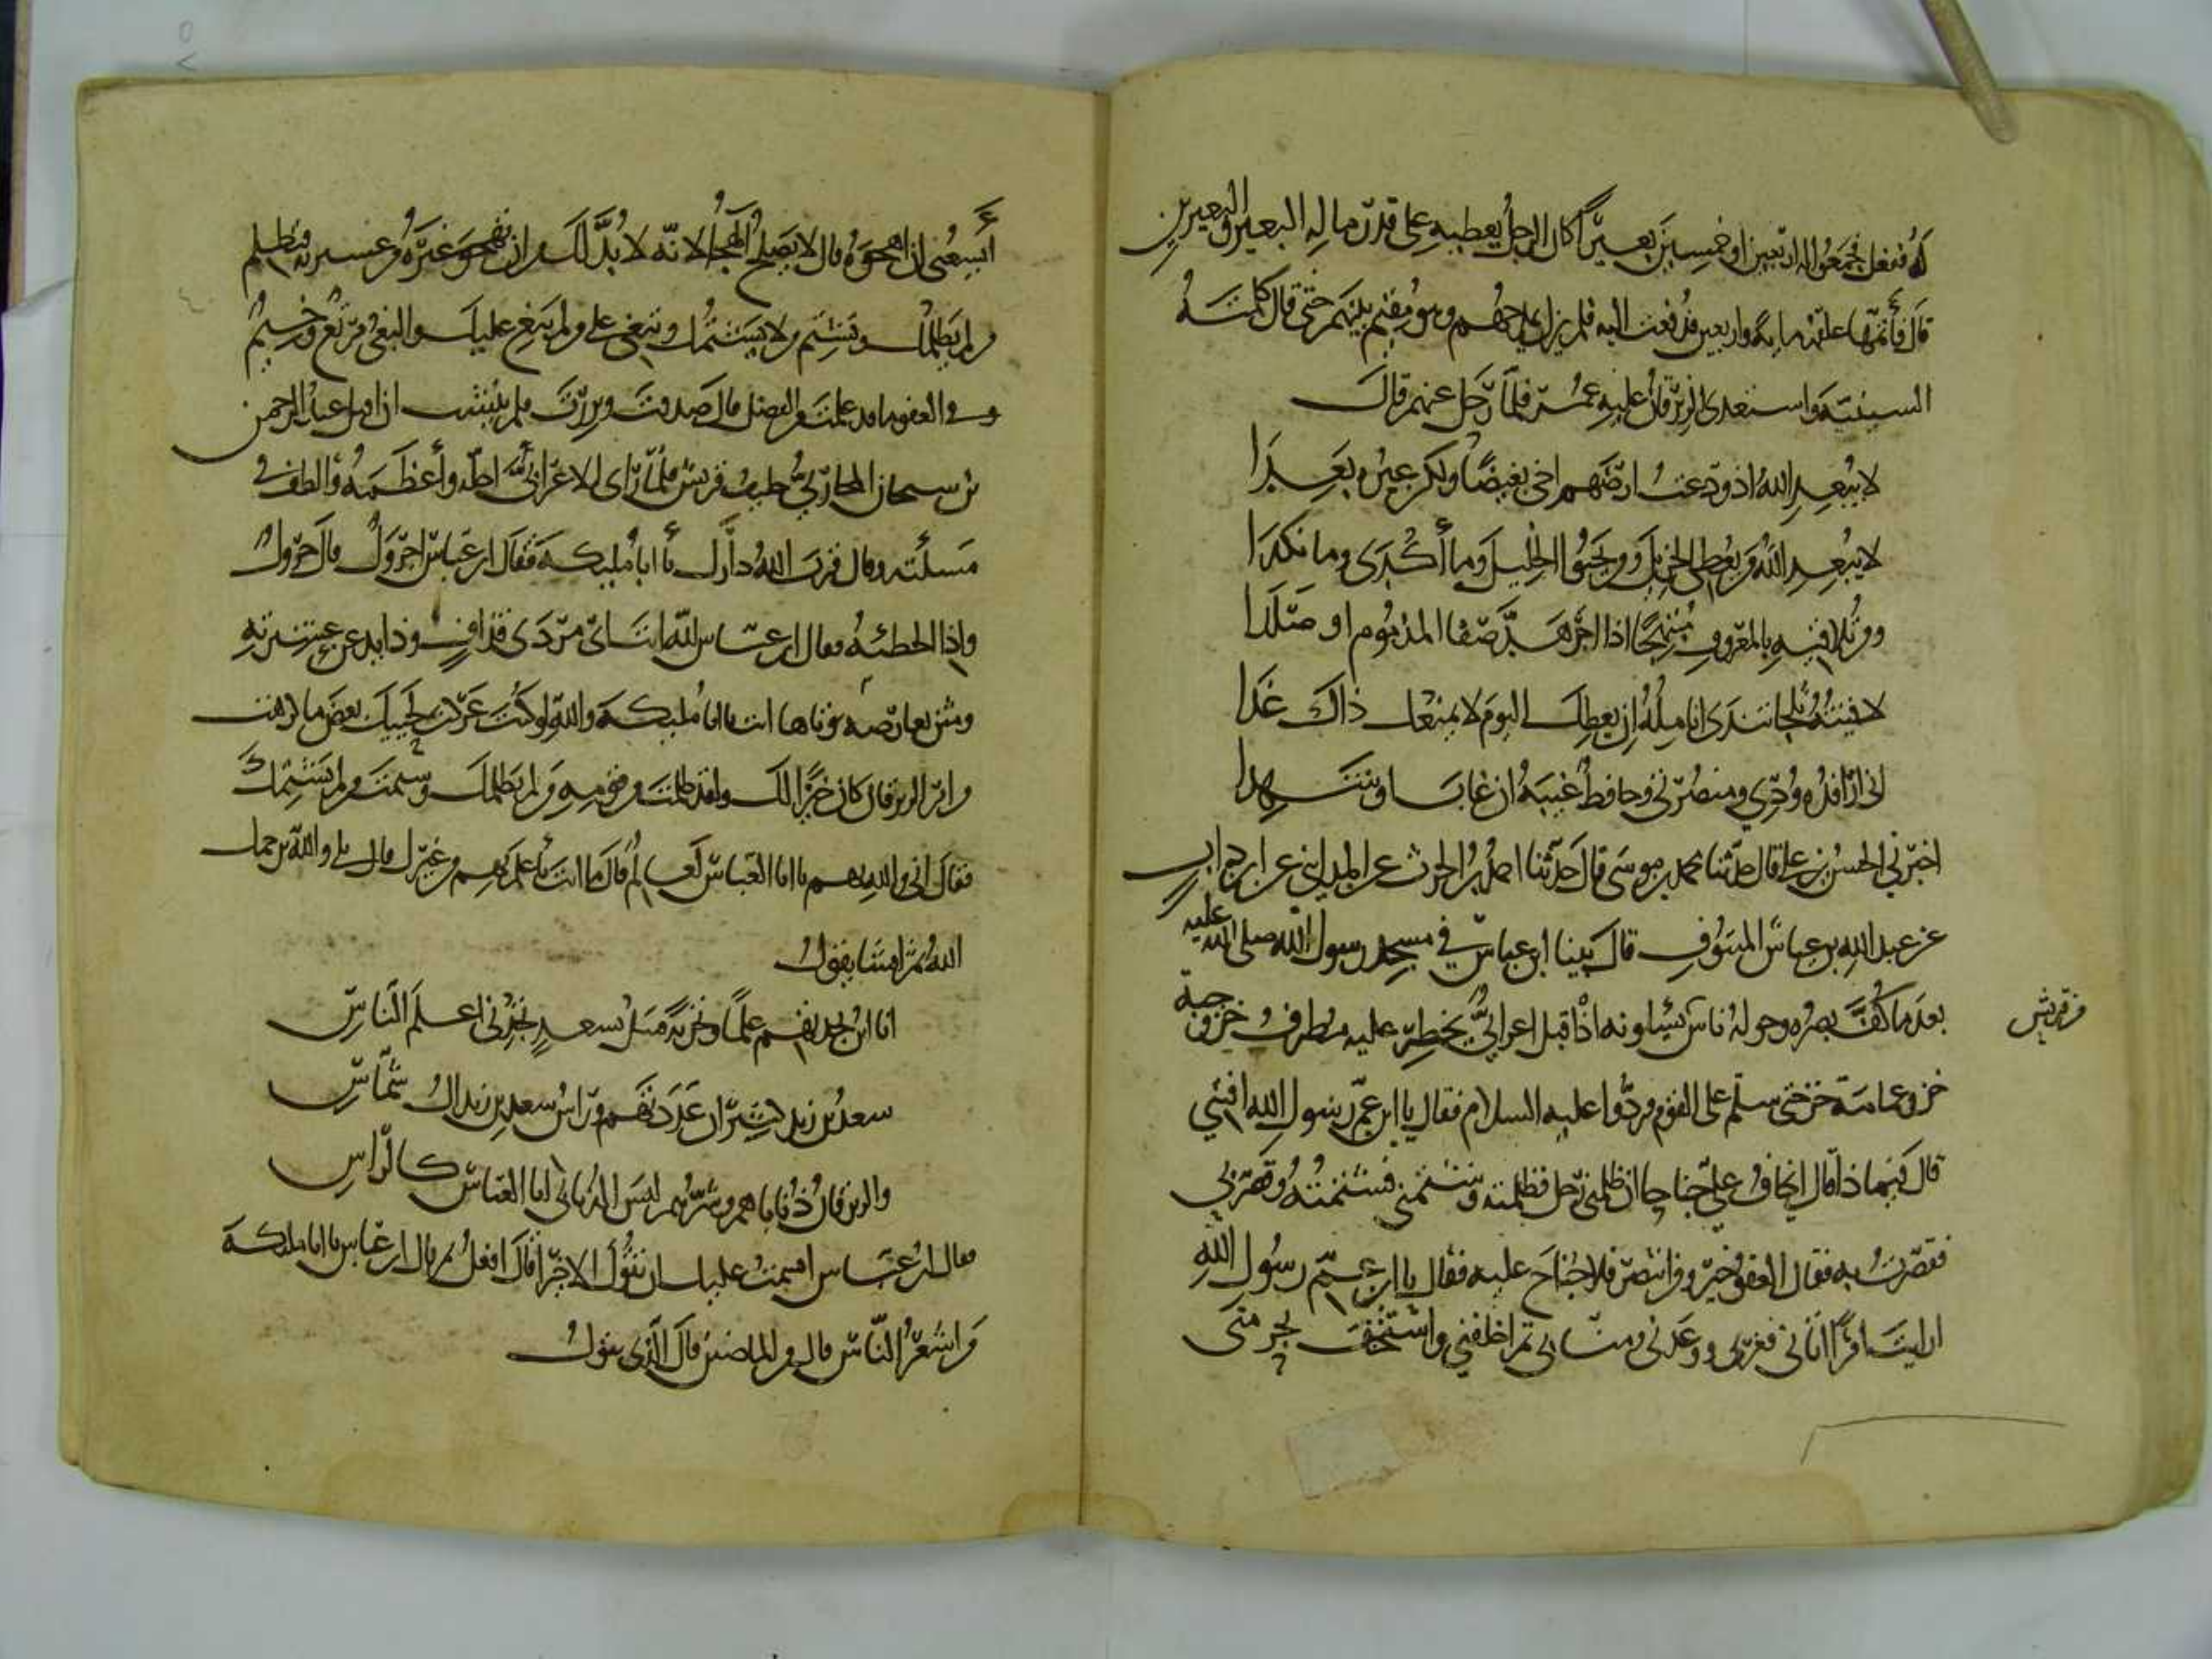 له ففعل فجمعوا له اربعين او خمسين بعيرا كان الرجل يعطيه على قدر ماله البعير والبعيرين
قال فأتمها علقمة مايه واربعين فدفعت اليه فلم يزل يمدحهم وهو مقيم بينهم حتى قال كلمته
السينيّة واستعدى الزبرقان عليه عمر فلما رحل عنهم قال
لا يبعد الله اذ ودعت ارضهم اخي بغيضا ولكن غيره بعدا
لا يبعد الله من يعطي الجزيل ومن يحبو الخليل وما أكدى وما نكدا
ومن تلاقيه بالمعروف مبتهجا اذا اجرهد صفا المذموم او صلدا
لاقيته ثلجا تندى انامله ان يعطك اليوم لا يمنعك ذاك غدا
اني لرافده ودي ومنصرتي وحافظ غيبه ان غاب او شهدا
اخبرني الحسن بن علي قال حدثنا محمد بن موسى قال حدثنا احمد بن الحرث عن المدايني عن ابن داب
عن عبد الله بن عياش المنتوف قال بينا ابن عباس في مسجد رسول الله صلى الله عليه
بعد ما كف بصره وحوله ناس من قريش يسألونه اذ اقبل اعرابي يخطر عليه مطرف خز وجبة
خز وعمامة خز حتى سلم على القوم فردوا عليه السلام فقال يا ابن عم رسول الله افتني
قال فيما ذا قال اتخاف علي جناحا ان ظلمني رجل فظلمته وشتمني فشتمته وقصر بي
فقصرت به فقال العفو خير ومن انتصر فلا جناح عليه فقال يا ابن عم رسول الله
ارايت امرأ اتاني فغرني ووعدني ومناني ثم اخلفني واستخف بحرمتي
أيسعني ان اهجوه قال لا يصلح الهجا لانه لا بد لك من ان تهجو غيره من عشيرته فتظلم
من لم يظلمك وتشتم من لا يشتمك وتبغي على من لم يبغ عليك والبغي مرتع وخيم
وفي العفو ما قد علمت من الفضل قال صدقت وبررت فلم ينشب ان اقبل عبد الرحمن
بن سيحان المحاربي حليف قريش فلما رأى الاعرابي اجله وأعظمه وألطف في
مسلته وقال قرب الله دارك يا ابا مليكة فقال ابن عباس اجرول قال جرول
واذا الحطيئه فقال ابن عباس لله انت اي مردى قذاف وذايد عن عشيرته
ومثن بعارفة توتاها انت يا ابا مليكة والله لو كنت عركت بجنبك بعض ما كرهت
من امر الزبرقان كان خيرا لك ولقد ظلمت من قومه من لم يظلمك وشتمت من لم يشتمك
فقال اني والله بهم يا ابا العباس لعالم قال ما انت بأعلم بهم من غيرك قال بلى والله يرحمك
الله ثم انشا يقول
انا ابن بجدتهم علما وتجربة فسل بسعد تجدني اعلم الناس
سعد بن زيد كثير ان عددتهم وراس سعد بن زيد ال شماس
والزبرقان ذناباهم وشرهم ليس الذنابى ابا العباس كالراس
فقال ابن عباس اقسمت عليك ان تقول الا خيرا قال افعل ثم قال ابن عباس يا ابا مليكة
من اشعر الناس قال من الماضين قال الذي يقول